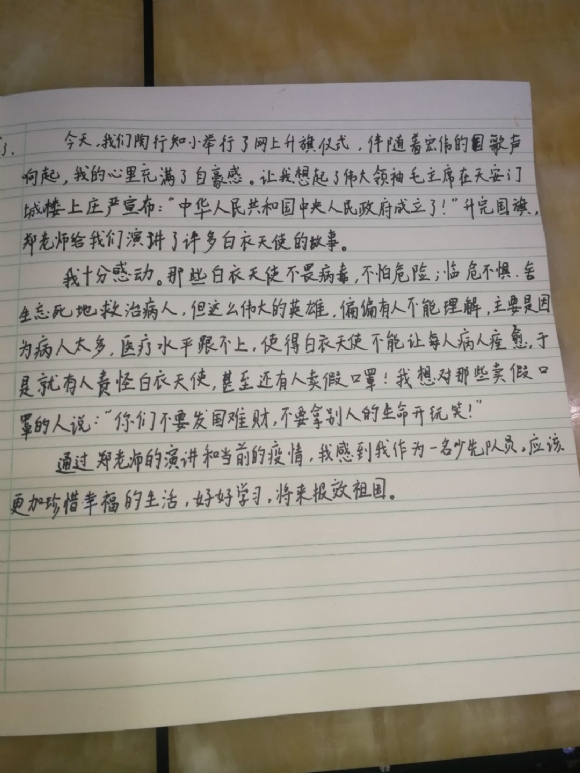 今天,我们陶行知小举行了网上升旗仪式,伴随着宏伟的国歌声
响起,我的心里充满了自豪感。让我想起了伟大领袖毛主席在天安门
城楼上庄严宣布:“中华人民共和国中央人民政府成立了!”升完国旗,
郑老师给我们演讲了许多白衣天使的故事。
我十分感动。那些白衣天使不畏病毒,不怕危险;临危不惧、舍
生忘死地救治病人,但这么伟大的英雄,偏偏有人不能理解,主要是因
为病人太多,医疗水平跟不上,使得白衣天使不能让每人病人痊愈,于
是就有人责怪白衣天使,甚至还有人卖假口罩!我想对那些卖假口
罩的人说:“你们不要发国难财,不要拿别人的生命开玩笑!”
通过郑老师的演讲和当前的疫情,我感到我作为一名少先队员,应该
更加珍惜幸福的生活,好好学习,将来报效祖国。